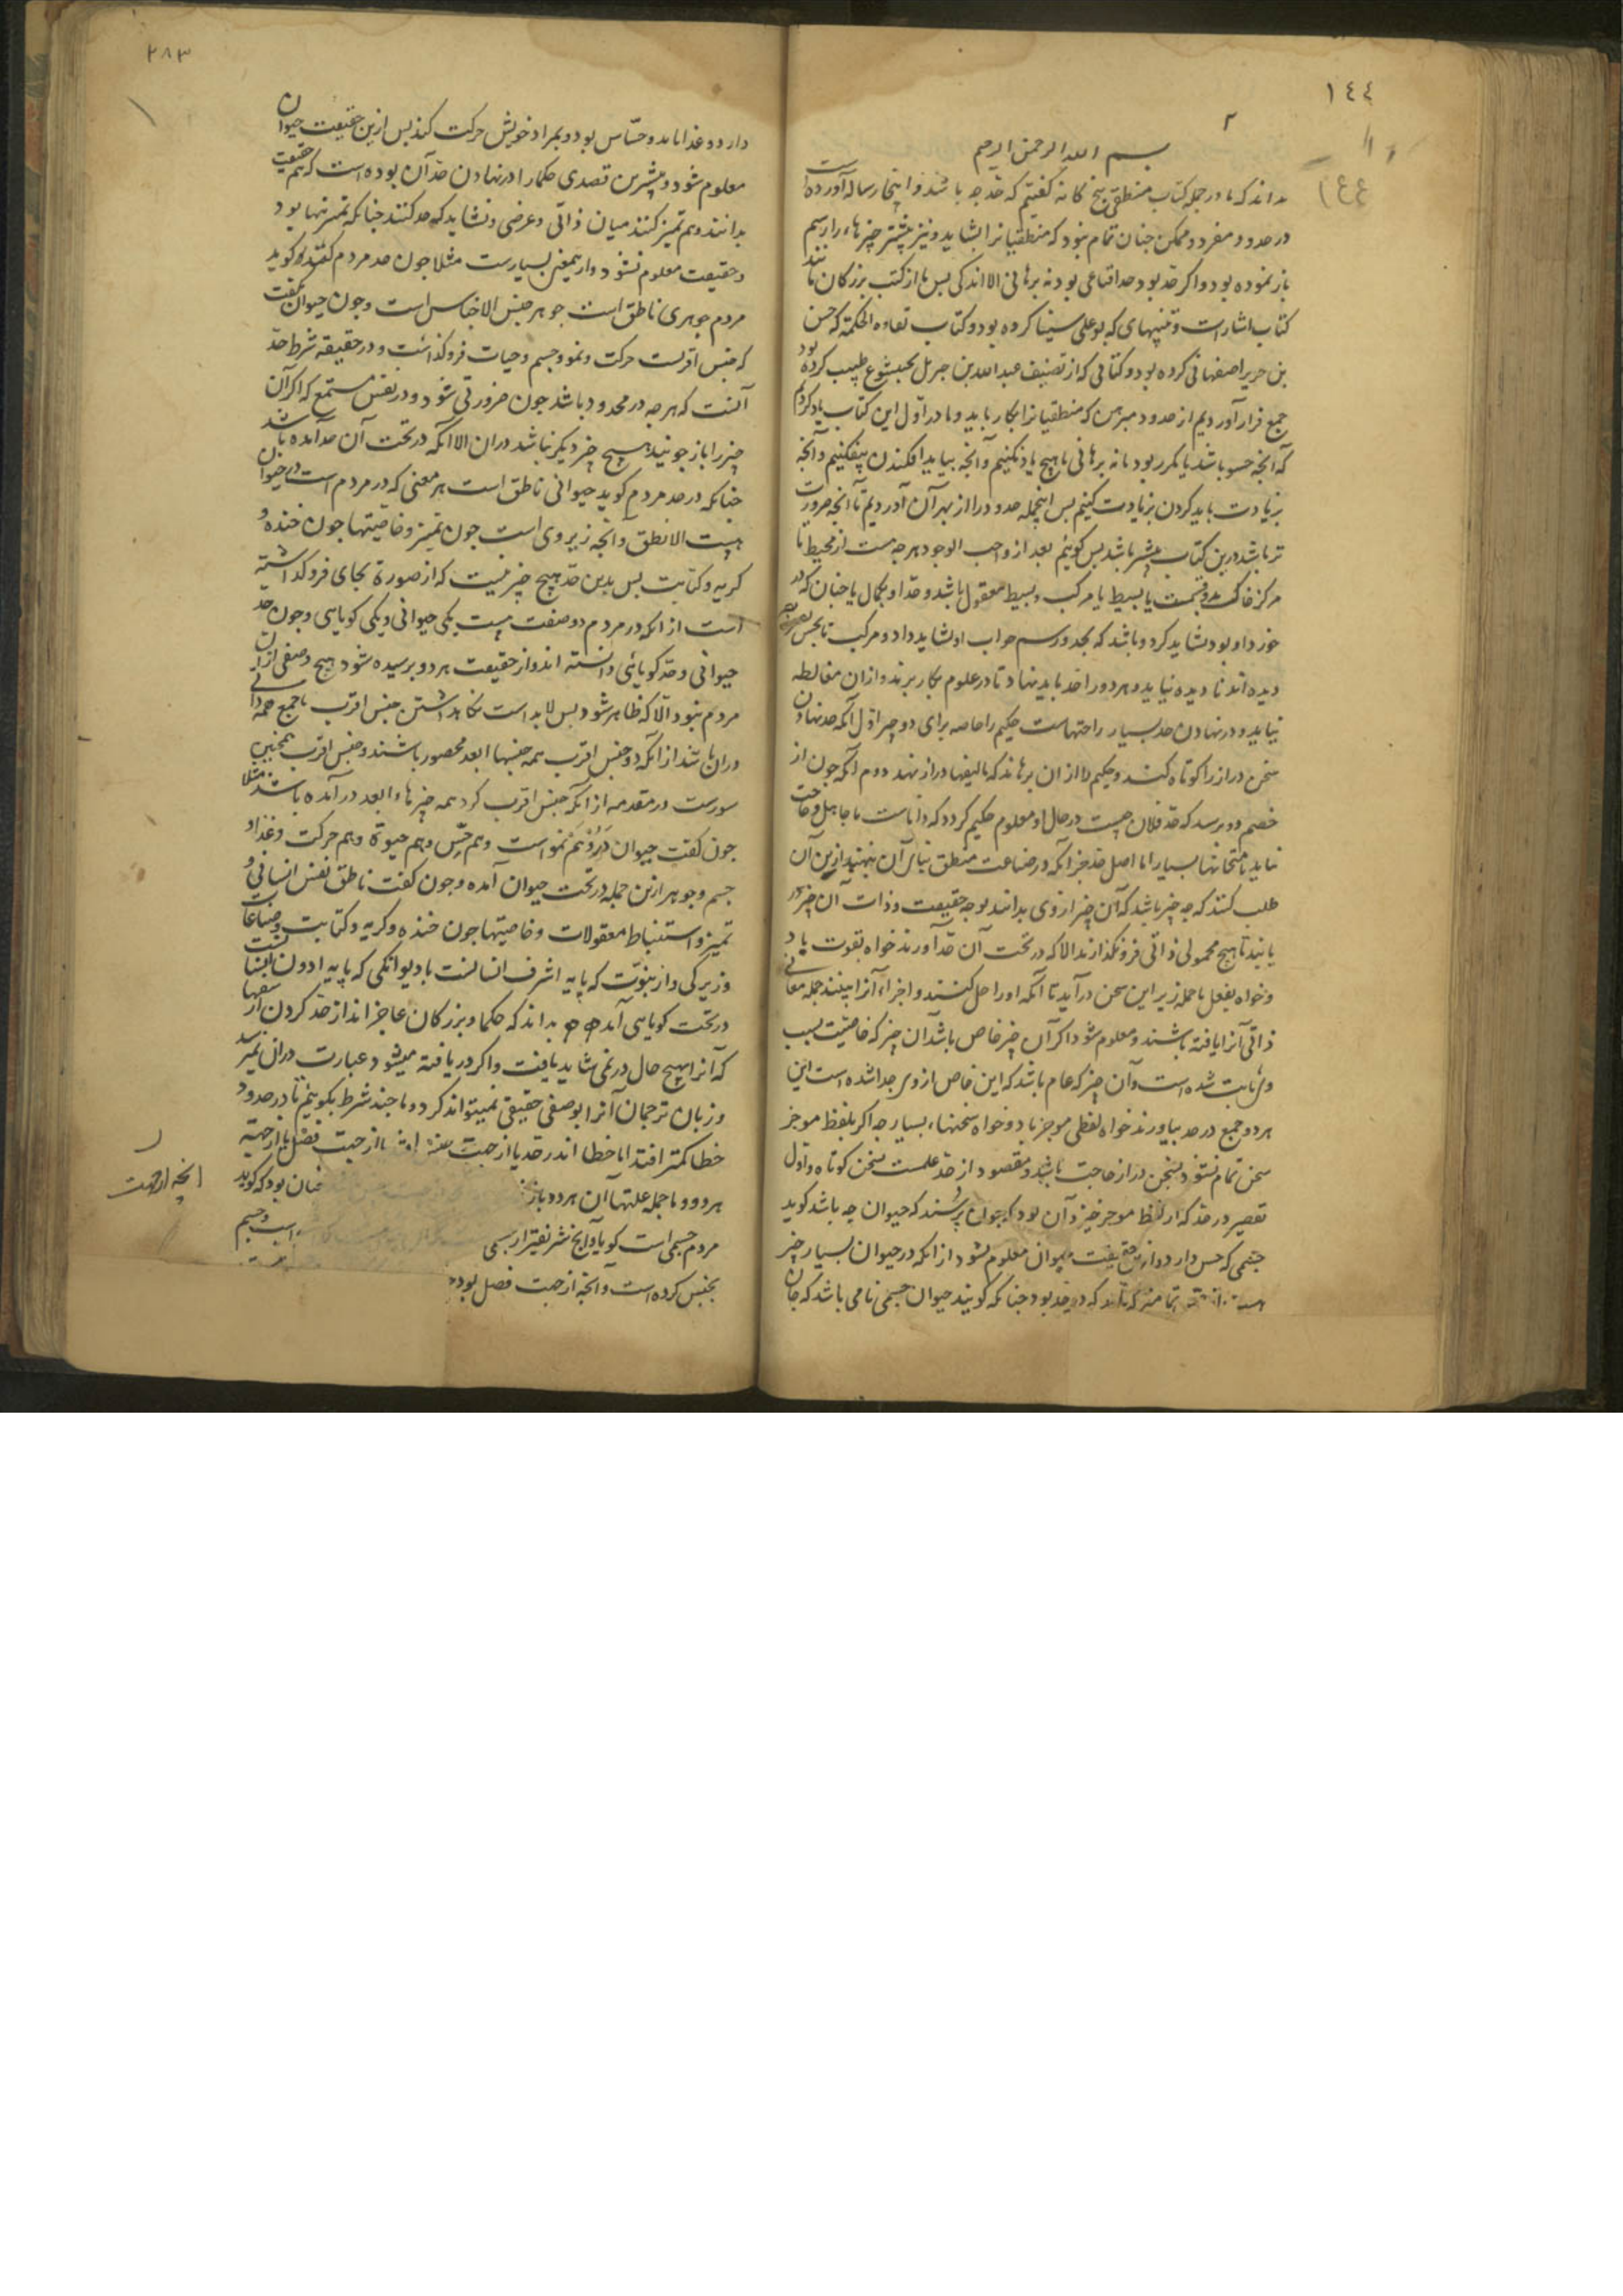 ١٤٤
٢
١٤٤
بسم الله الرحمن الرحیم
بداند که ما در جمله کتاب منطقی پنج کانه گفتیم که حد چه باشد و اینجا رساله آورده است
در حدود مفرد و ممکن چنان تمام نبود که منطقیانرا بشاید و نیز بیشتر چیزهاء را رسم
باز نموده بود و اکر حد بود حد اقناعی بود نه برهانی الا اندکی بس ما از کتب بزرکان مانند
کتاب اشارات و تنبیهای که بوعلی سینا کرده بود و کتاب نقاوه الحکمة که حسن
بن جریر اصفهانی کرده بود و کتابی که از تصنیف عبدالله بن جبریل بختیشوع طبیب کرده بود
جمع فراز آوردیم از حدود مبرهن که منطقیانرا بکار باید و ما در اول این کتاب یاد کردیم
که آنچه حشو باشد یا مکرر بود یا نه برهانی ما هیچ یاد نکنیم و آنچه بباید افکندن بیفکنیم و آنچه
بزیادت باید کردن بزیادت کنیم بس اینجمله حدود را از بهر آن آوردیم تا آنچه ضرورت
تر باشد درین کتاب بیشتر باشد بس کوئیم بعد از واجب الوجود هرچه هست از محیط تا
مرکز خاک بدو قسمت یا بسیط یا مرکب و بسیط معقول باشد و حد او بکمال یا چنان که در
خور داو بود نشاید کرد و باشد که بحد و رسم جواب او نشاید داد و مرکب تا بحس بصر
دیده اند نادیده نیاید و هر دو را حد باید نهاد تا در علوم بکار برند و از آن مغالطه
نیاید و در نهادن حد بسیار راحتهاست حکیم را خاصه برای دو چیز اول آنکه حد نهادن
سخن دراز را کوتاه کند و حکیم را از آن برهاند که تالیفها دراز نهد دوم آنکه چون از
خصم در برسد که حد فلان چیست در حال او معلوم حکیم کردد که داناست یا جاهل و حاجت
نیاید بامتحانها بسیار اما اصل حد جز آنکه در صناعت منطق بنای آن بنهند ازین آن
طلب کنند که چه چیز باشد که آن چیز از وی بدانند بوجه حقیقت و ذات آن چیز در
یابند تا هیچ محمولی ذاتی فرو نکذارند الا که در تحت آن حد آورند خواه بقوت یاد
و خواه بفعل تا جمله زیر این سخن در آید تا آنکه او را حل کنند و اجزاء آنرا ببینند جمله معانی
ذاتی آنرا یافته باشند و معلوم شود اکر آن چیز خاص باشد آن چیز که خاصیت بسبب
وی ثابت شده است و آن چیز که عام باشد که این خاص از وی جدا شده است این
هر دو جمع در حد بیاورند خواه لفظی موجز باد و خواه سخنها بسیار چه اکر بلفظ موجز
سخن تمام نشود بسخن دراز حاجت باشد و مقصود از حد علمست سخن کوتاه و اول
تقصیر در حد که از لفظ موجز خیزد آن بود که چون پرسند که حیوان چه باشد کوید
جسمی که حس دارد و از این حقیقت حیوان معلوم نشود از آنکه در حیوان بسیار چیز
که در حد بود چنانکه کویند حیوان جسمی نامی باشد که جان
٢٨٣
دارد و غذا یابد و حساس بود و بمراد خویش حرکت کند بس ازین حقیقت حیوان
معلوم شود و بیشترین قصدی حکما را در نهادن حد آن بوده است که هم حقیقت
بدانند و هم تمییز کنند میان ذاتی و عرضی و نشاید که حد کنند چنانکه تمییز تنها بود
و حقیقت معلوم نشود و از یمعنی بسیارست مثلا چون حد مردم کفتند که کوید
مردم جوهری ناطق است جوهر جنس الاجناس است و چون حیوان نگفت
که جنس اقربست حرکت و نمو و جسم و حیات فرو گذاشت و در حقیقه شرط حد
آنست که هرچه در محدود باشد چون ضرورتی شود و در نفس مستمع که اکر آن
چیز را باز جویند هیچ چیز دیکر نباشد در آن الا آنکه در تحت آن حد آمده باشد
چنانکه در حد مردم کوید حیوانی ناطق است هر معنی که در مردم است در حیوان
هست الا نطق و آنچه زیر وی است چون تمییز و خاصیتها چون خنده و
کریه و کتابت بس بدین حد هیچ چیز نیست که از صورة بجای فرو کذاشته
است از آنکه در مردم دو صفت هست یکی حیوانی و یکی کویایی و چون حد
حیوانی و حد کویائی دانسته اند و از حقیقت هر دو برسیده شود هیچ وصفی از آن
مردم نبود الا که ظاهر شود بس لابد است نکاه داشتن جنس اقرب تا جمع همه ذاتی
در آن باشد از آنکه در جنس اقرب همه جنسها ابعد محصور باشند و جنس اقرب همچنین
سورست در مقدمه از آنکه جنس اقرب کرد همه چیزهاء ابعد در آمده باشد مثلا
چون کفت حیوان درو هم نمو است و هم حس و هم حیوة و هم حرکت و غذا و
جسم و جوهر ازین جمله در تحت حیوان آمده و چون کفت ناطق نفس انسانی و
تمییز و استنباط معقولات و خاصیتها چون خنده و کریه و کتابت و صناعات
و زیرکی و از نبوت که پایه اشرف انسانست تا دیوانکی که پایه ادون انسانست
در تحت کویایی آمد بداند که حکما و بزرکان عاجز اند از حد کردن از صفها
که آنرا بهیچ حال در نمی شاید یافت و اکر دریافته میشود عبارت در آن نمیرسد
و زبان ترجمان آنرا بوصفی حقیقی نمیتواند کرد و ما چند شرط بکوییم تا در حدود
خطا کمتر افتد اما خطا اندر حد یا از جهت یا از جهت فصل یا از جهة
هر دو و ما جمله علتها آن هر دو باز چنان بود که کوید
مردم جسمی است کویا و آنچ
بجنس کرده است و آنچه از جهت فصل بود
آنچه از جهت